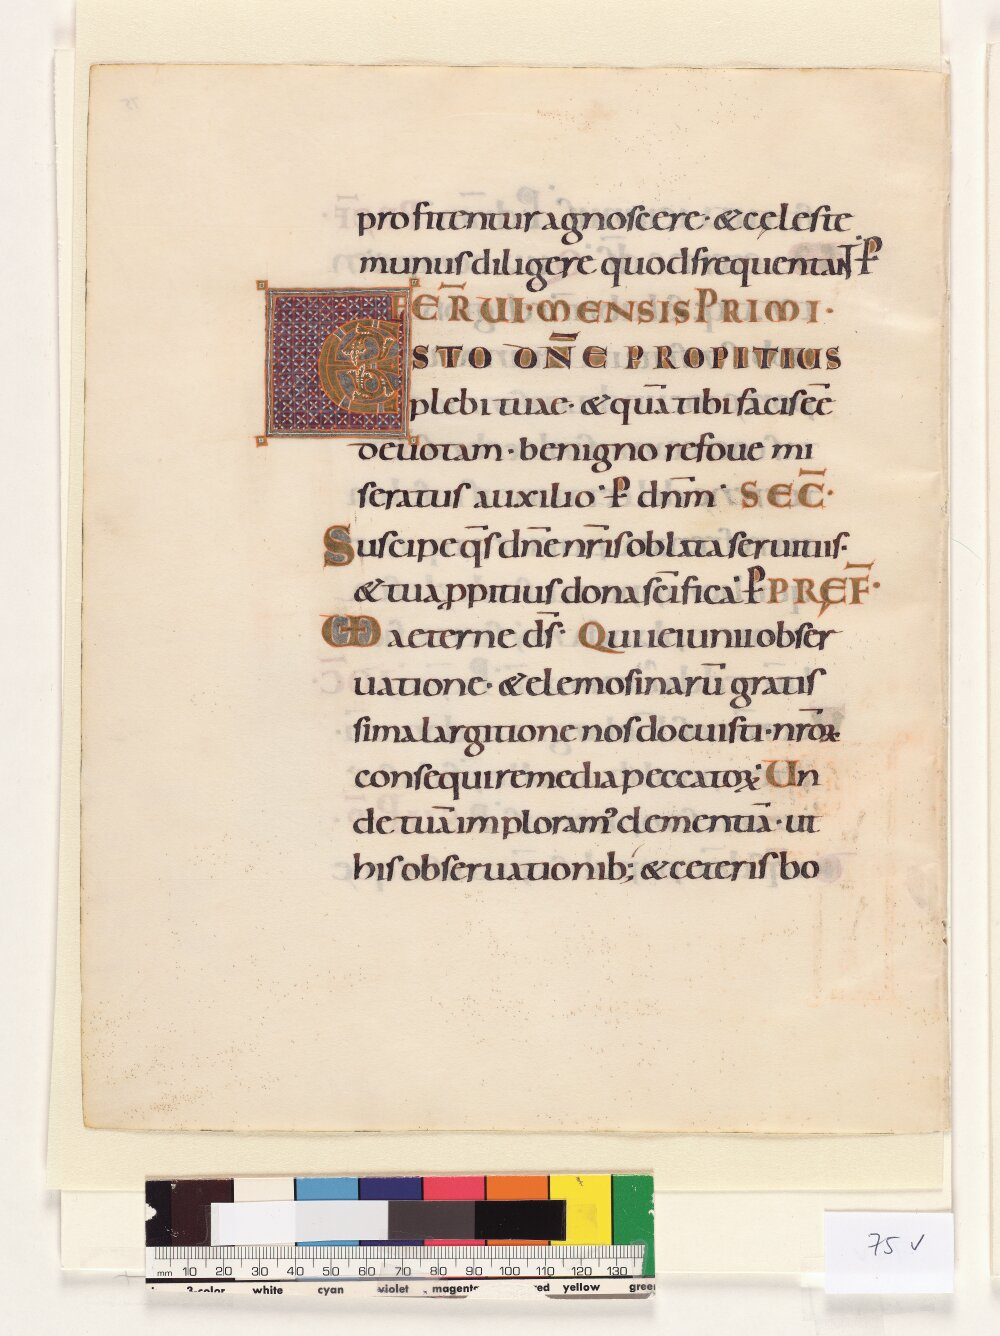 profitentur agnoscere · & cęleste
munus diligere quod frequentant · P̄
FER̄ VI · MENSIS PRIMI ·
ESTO DN̄E PROPITIUS
plebi tuae · & quā tibi facis eē
devotam · benigno refove mi
seratus auxilio · P̄ dnm̄ · SEC̄ ·
Suscipe qs̄ dn̄e nr̄is oblata servitiis ·
& tua ꝓpitius dona sc̄ifica · P̄ · PRĘF̄ ·
VD aeterne ds̄ · Qui ieiunii obser
vatione · & elemosinarū gratis
sima largitione nos docuisti · nr̄oꝝ
consequi remedia peccatoꝝ · Un
de tuā imploram᾽ clementiā · ut
his observationib; & ceteris bo
75 v
mm 10 20 30 40 50 60 70 80 90 100 110 120 130
3-color white cyan violet magenta red yellow green